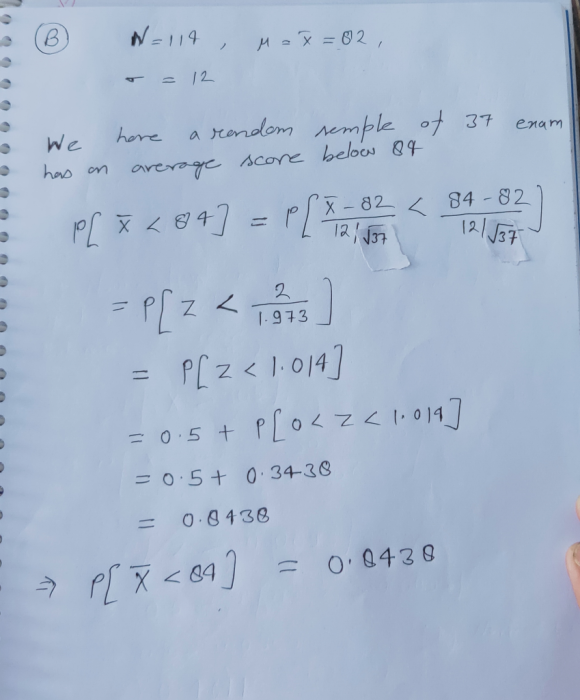 (B) N = 114 , μ = x̄ = 82 ,
σ = 12
We have a random semple of 37 exam
has an average score below 84
P[ x̄ < 84 ] = P[ (x̄ - 82)/(12/√37) < (84 - 82)/(12/√37) ]
= P[ Z < 2/1.973 ]
= P[ Z < 1.014 ]
= 0.5 + P[ 0 < Z < 1.014 ]
= 0.5 + 0.3438
= 0.8438
⇒ P[ x̄ < 84 ] = 0.8438